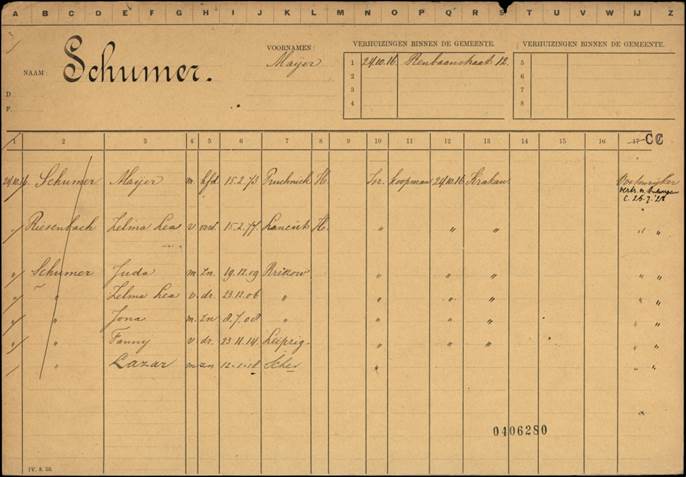 A B C D E F G H I J K L M N O P Q R S T U V W X Y Z
NAAM: Schumer.
VOORNAMEN:
Majer
D.
F.
VERHUIZINGEN BINNEN DE GEMEENTE.
1 24.10.16 Renbaanstraat 12.
2
3
4
VERHUIZINGEN BINNEN DE GEMEENTE.
5
6
7
8
1 2 3 4 5 6 7 8 9 10 11 12 13 14 15 16 17 CC
Schumer Majer m. hfd. 15.2.75 Pruchnick H. Isr. koopman 24.10.16 Krakau Oostenrijker
C. 26.7.'28
Riesenbach Zelma Lea v 15.2.77 H. " " " "
" Schumer Juda m. zn. 19.12.09 " " " "
" " Zelma Lea v. dr. 23.12.06 " " " " "
" " Jona m. zn 8.7.08 " " " " "
" " Fanny v. dr. 23.11.14 Leipzig " " " "
" " Lazar m. zn 12-1-18 Sche
0406280
IV. 8. 50.